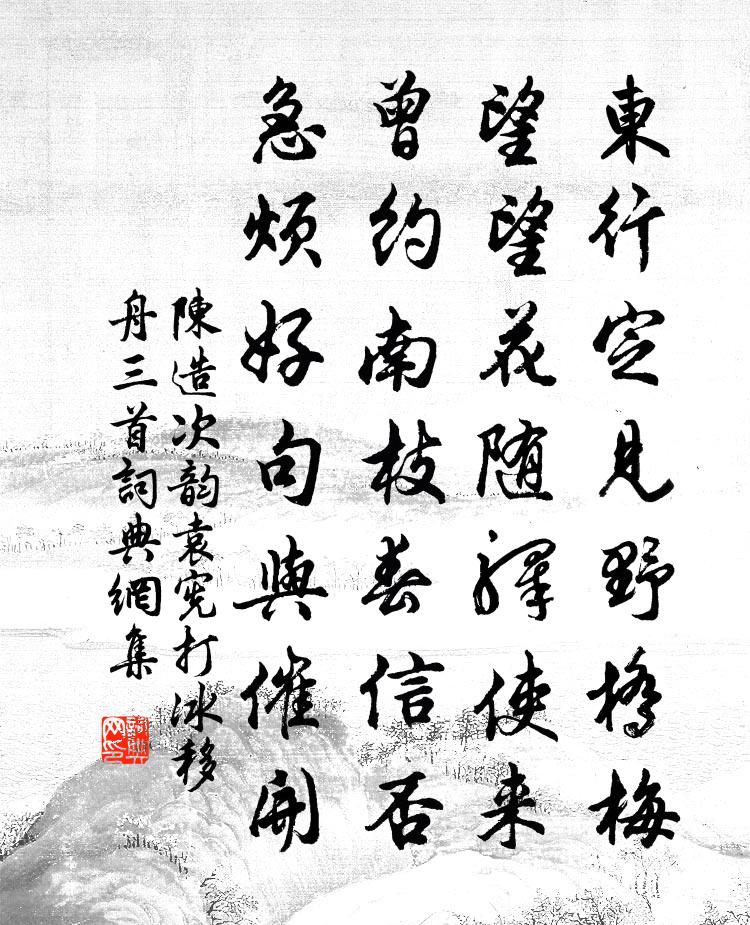 東行定見野橋梅
望望花随驛使来
曾約南枝春信否
急煩好句與催開
陳造次韵袁宪打冰移
舟三首詞典網集